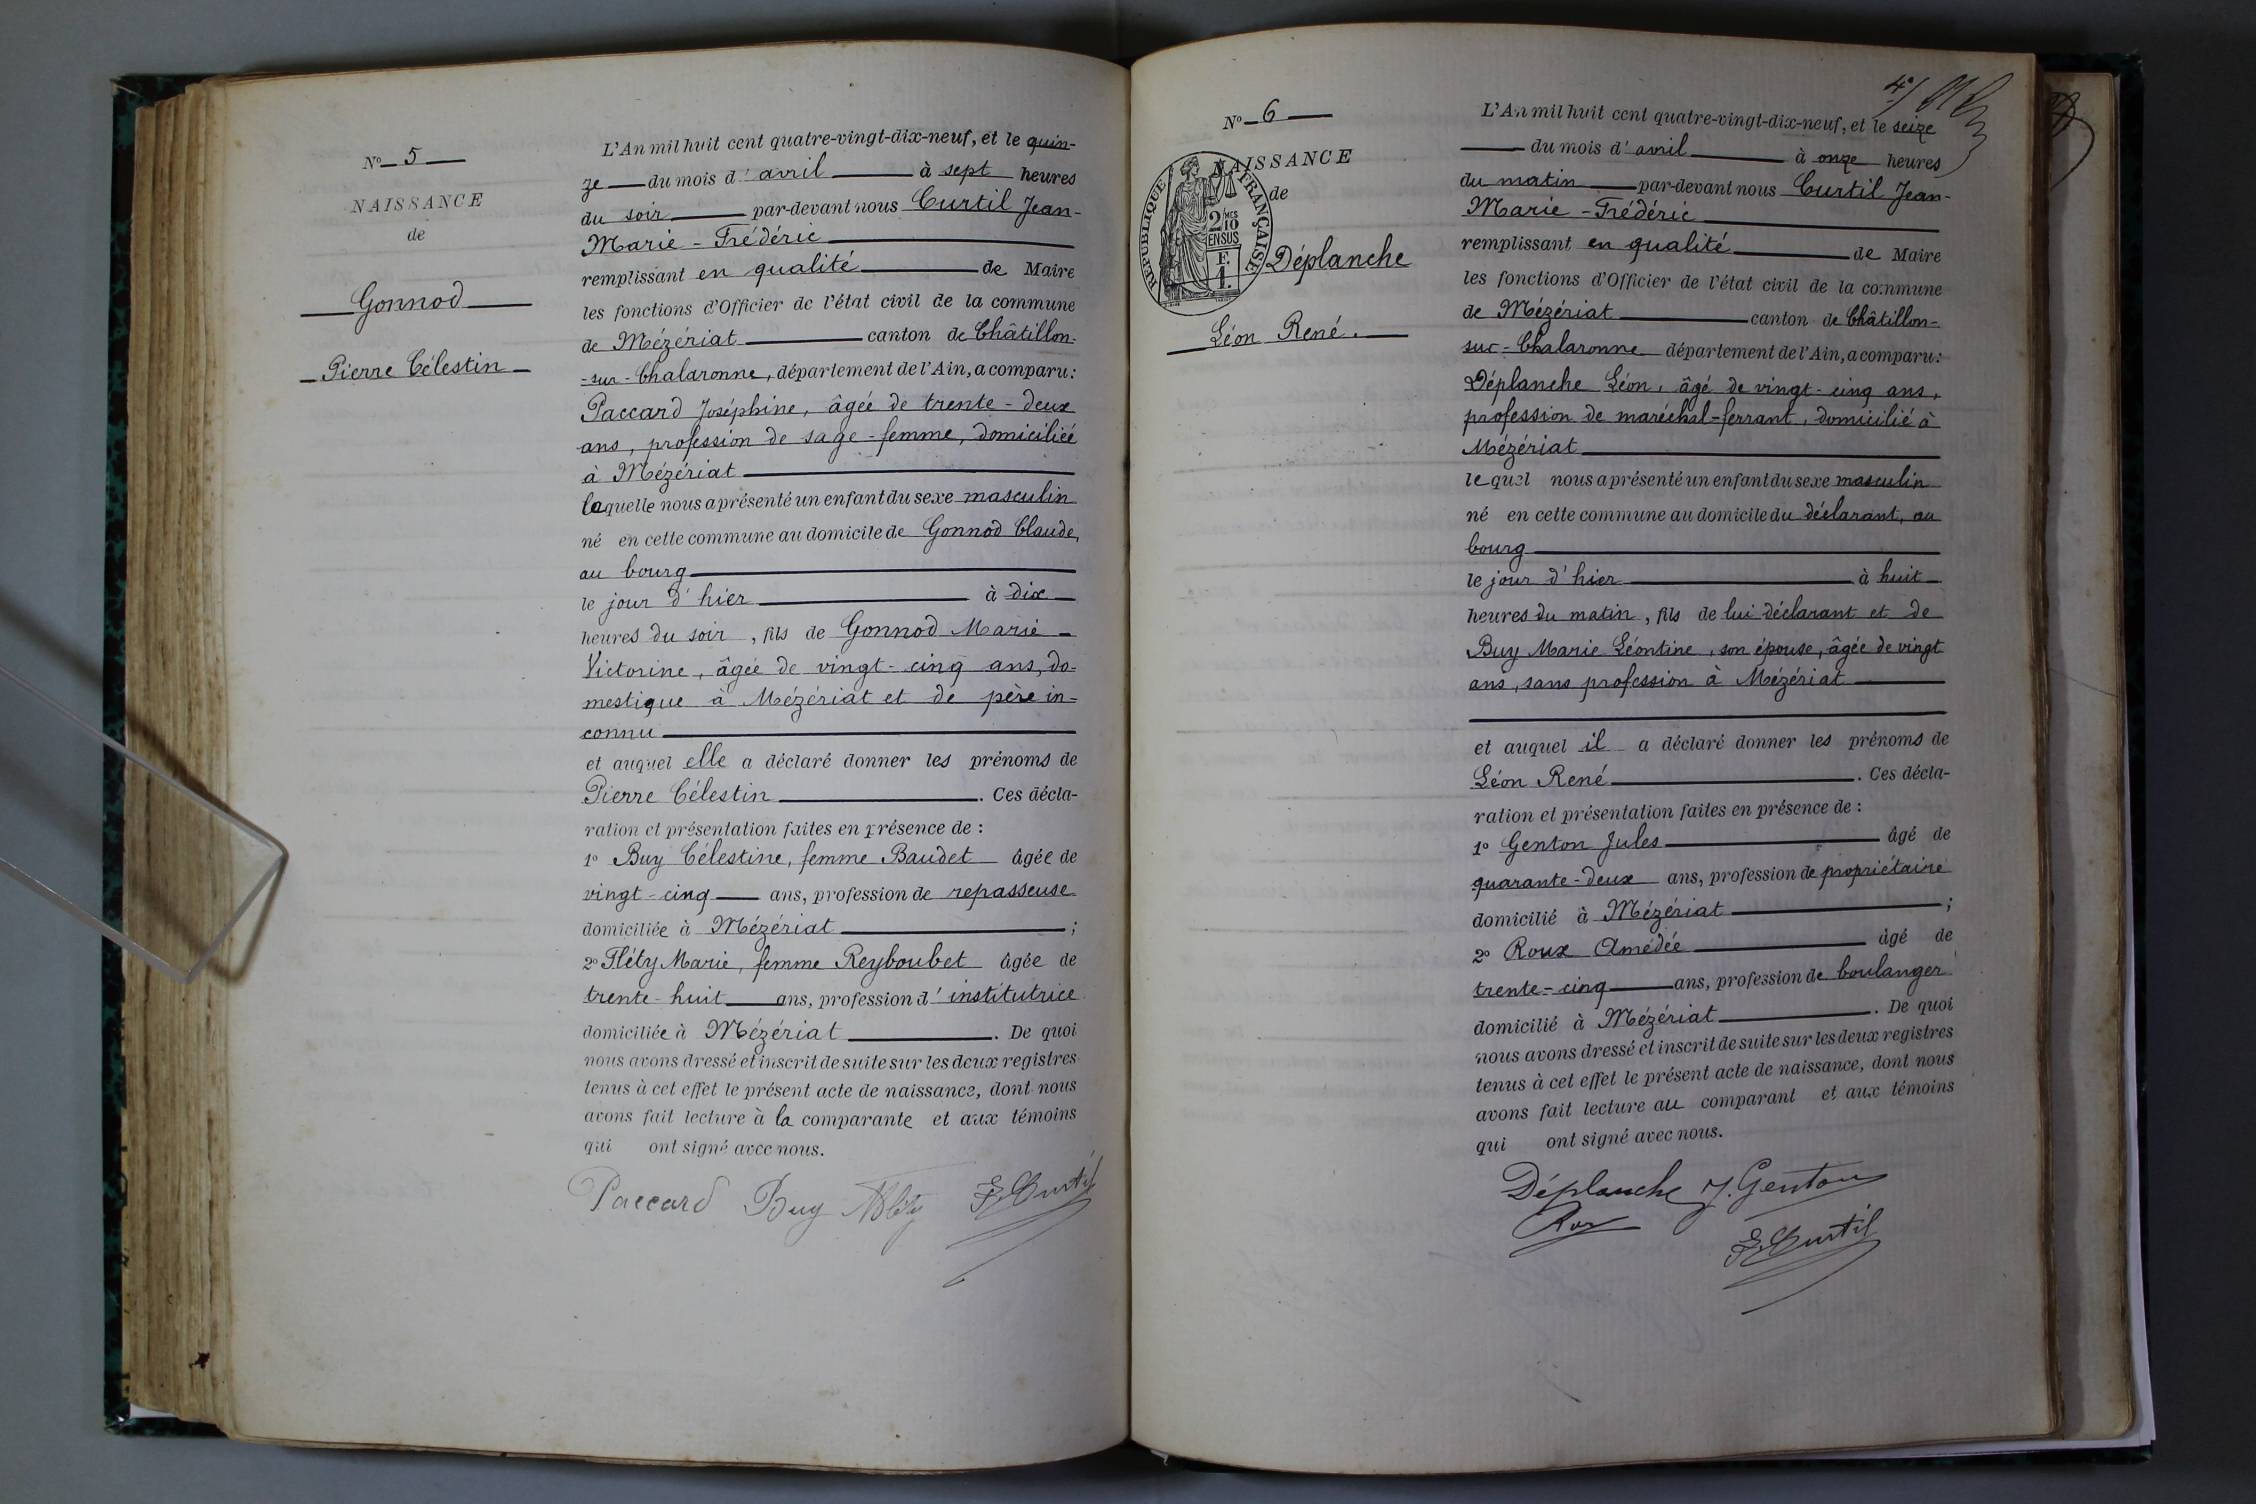 Nº 5
NAISSANCE
de
Gonnod
Pierre Célestin
L'An mil huit cent quatre-vingt-dix-neuf, et le quin-
ze du mois d'avril à sept heures
du soir par-devant nous Curtil Jean-
Marie-Frédéric
remplissant en qualité de Maire
les fonctions d'Officier de l'état civil de la commune
de Mézériat canton de Châtillon-
-sur-Chalaronne, département de l'Ain, a comparu:
Paccard Joséphine, âgée de trente-deux
ans, profession de sage-femme, domiciliée
à Mézériat
laquelle nous a présenté un enfant du sexe masculin
né en cette commune au domicile de Gonnod Claude,
au bourg
le jour d'hier à dix
heures du soir, fils de Gonnod Marie-
Victorine, âgée de vingt-cinq ans, do-
mestique à Mézériat et de père in-
connu
et auquel elle a déclaré donner les prénoms de
Pierre Célestin. Ces décla-
ration et présentation faites en présence de :
1º Buy Célestine, femme Baudet âgée de
vingt-cinq ans, profession de repasseuse
domiciliée à Mézériat ;
2º Fléty Marie, femme Reyboubet âgée de
trente-huit ans, profession d'institutrice
domiciliée à Mézériat. De quoi
nous avons dressé et inscrit de suite sur les deux registres
tenus à cet effet le présent acte de naissance, dont nous
avons fait lecture à la comparante et aux témoins
qui ont signé avec nous.
Paccard Buy F. Curtil
4e/
Nº 6
NAISSANCE
de
RÉPUBLIQUE FRANÇAISE
2/MES
10
EN SUS
F.
1.
Déplanche
Léon René.
L'An mil huit cent quatre-vingt-dix-neuf, et le seize
du mois d'avril à onze heures
du matin par-devant nous Curtil Jean-
Marie-Frédéric
remplissant en qualité de Maire
les fonctions d'Officier de l'état civil de la commune
de Mézériat canton de Châtillon-
sur-Chalaronne département de l'Ain, a comparu:
Déplanche Léon, âgé de vingt-cinq ans,
profession de maréchal-ferrant, domicilié à
Mézériat
lequel nous a présenté un enfant du sexe masculin
né en cette commune au domicile du déclarant, au
bourg
le jour d'hier à huit
heures du matin, fils de lui déclarant et de
Buy Marie Léontine, son épouse, âgée de vingt
ans, sans profession à Mézériat
et auquel il a déclaré donner les prénoms de
Léon René. Ces décla-
ration et présentation faites en présence de :
1º Genton Jules âgé de
quarante-deux ans, profession de propriétaire
domicilié à Mézériat ;
2º Roux Amédée âgé de
trente-cinq ans, profession de boulanger
domicilié à Mézériat. De quoi
nous avons dressé et inscrit de suite sur les deux registres
tenus à cet effet le présent acte de naissance, dont nous
avons fait lecture au comparant et aux témoins
qui ont signé avec nous.
Déplanche J. Genton
Roux
F. Curtil